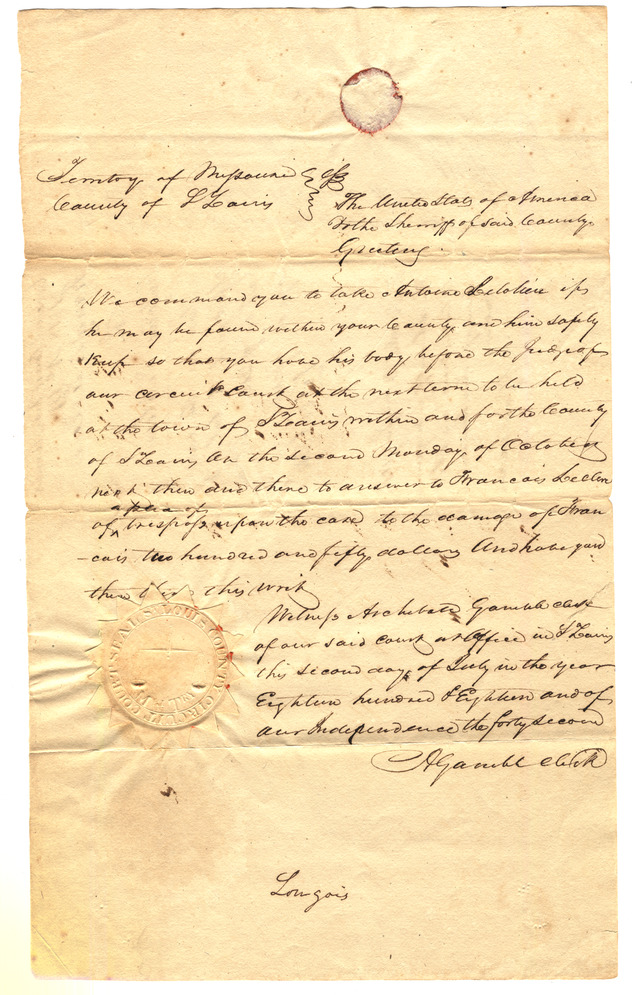 Territory of Missouri
County of St Louis
The United States of America
To the Sherriff of said County
Greeting.
We command you to take Antoine if
he may be found within your County and him safely
keep so that you have his body before the Judge of
our circuit Court at the next term to be held
at the town of St Louis within and for the County
of St Louis On the second Monday of October
next then and there to answer to Francois
a plea of
of trespass upon the case to the damage of Fran
-cois two hundred and fifty dollars And have you
then this writ
Witness Archibald Gamble clerk
of our said court at Office in St Louis
this second day of July in the year
Eighteen hundred & Eighteen and of
our Independence the forty second
A Gamble clerk
SEAL ST LOUIS COUNTY CIRCUIT COURT
Longois